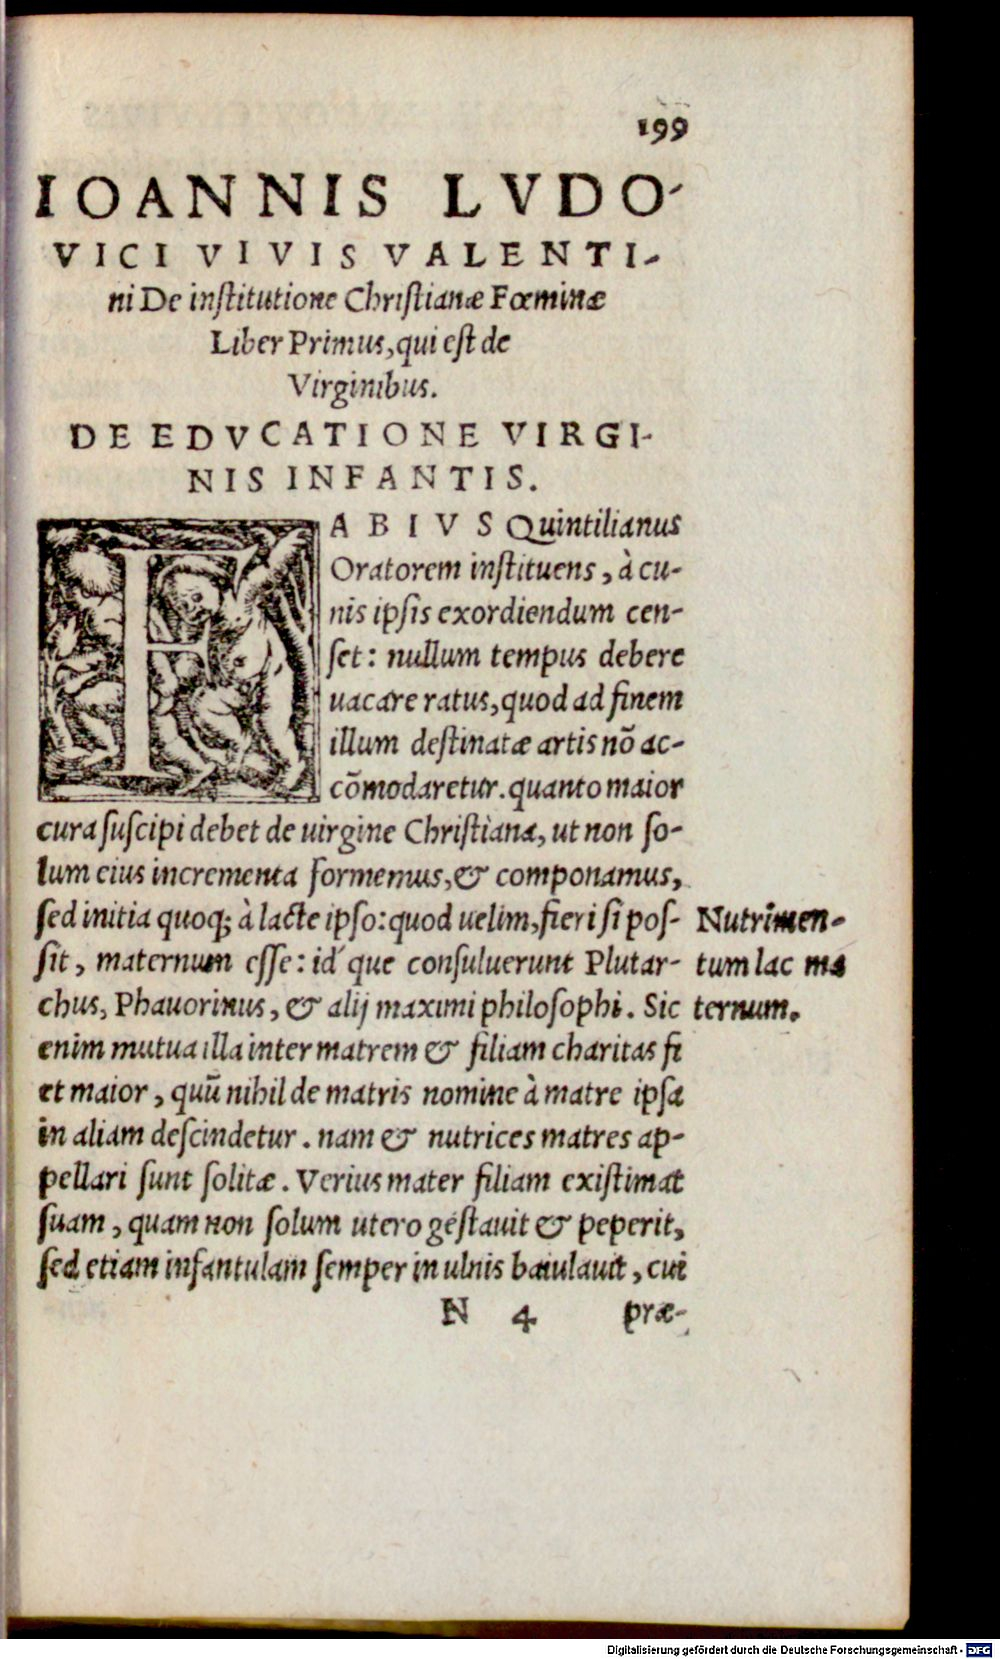 199
IOANNIS LVDO-
VICI VIVIS VALENTI-
ni De institutione Christianæ Fœminæ
Liber Primus, qui est de
Virginibus.
DE EDVCATIONE VIRGI-
NIS INFANTIS.
FABIVS Quintilianus
Oratorem instituens, à cu-
nis ipsis exordiendum cen-
set: nullum tempus debere
uacare ratus, quod ad finem
illum destinatæ artis nō ac-
cōmodaretur. quanto maior
cura suscipi debet de uirgine Christiana, ut non so-
lum eius incrementa formemus, & componamus,
sed initia quoq; à lacte ipso: quod uelim, fieri si pos-
sit, maternum esse: id que consuluerunt Plutar-
chus, Phauorinus, & alij maximi philosophi. Sic
enim mutua illa inter matrem & filiam charitas fi
et maior, quū nihil de matris nomine à matre ipsa
in aliam descindetur. nam & nutrices matres ap-
pellari sunt solitæ. Verius mater filiam existimat
suam, quam non solum utero gestauit & peperit,
sed etiam infantulam semper in ulnis baiulauit, cui
Nutrimen-
tum lac ma
ternum.
N 4 præ-
Digitalisierung gefördert durch die Deutsche Forschungsgemeinschaft - DFG